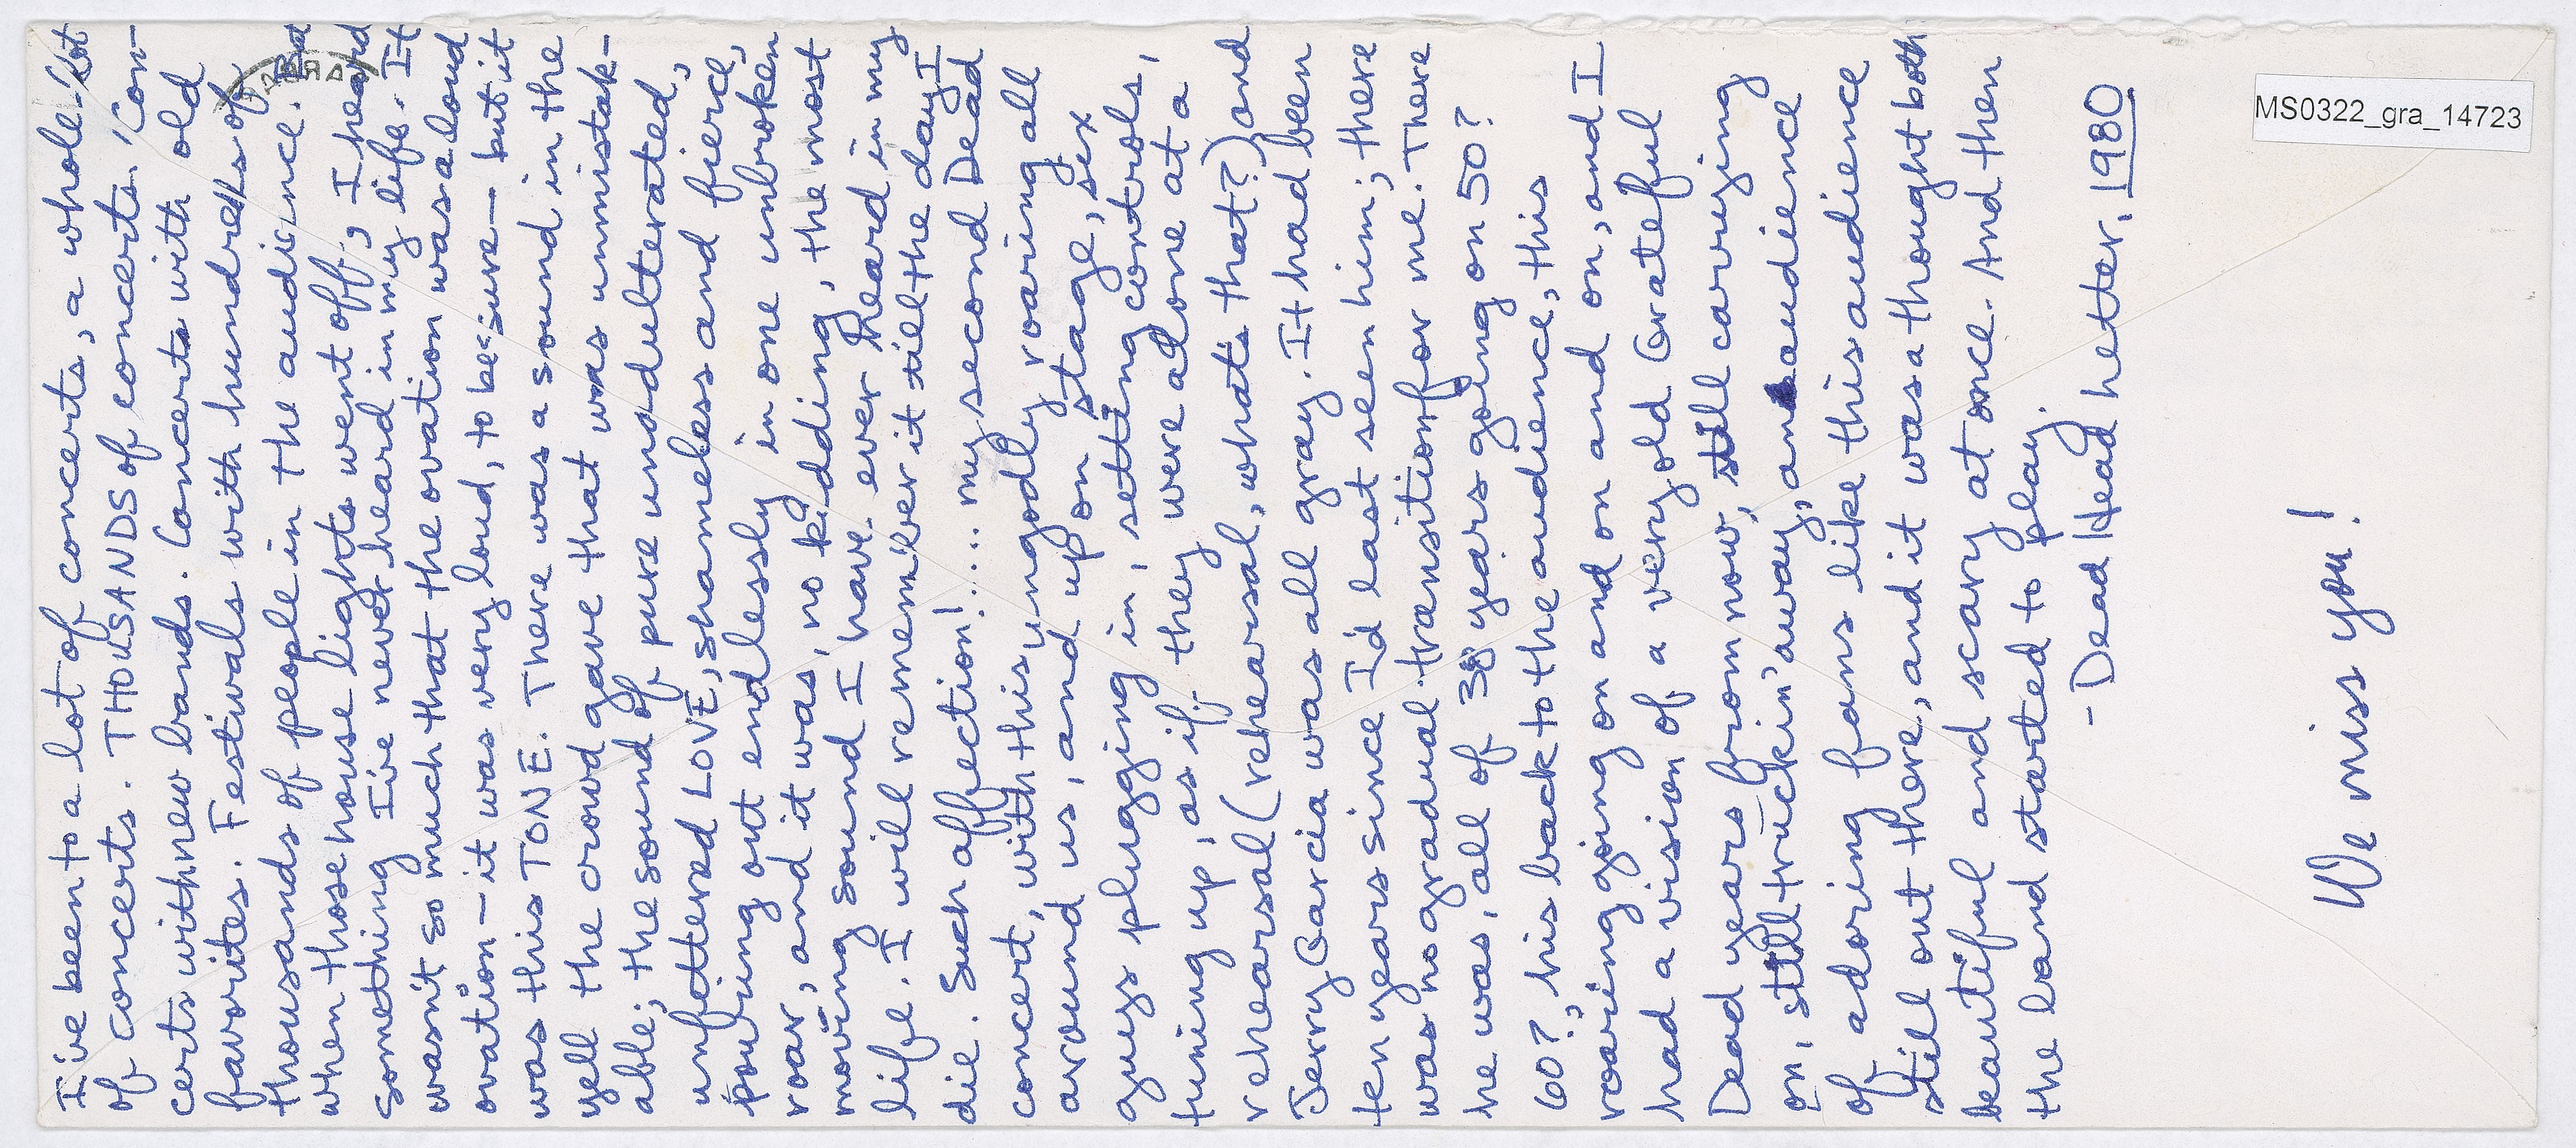 I've been to a lot of concerts, a whole lot
of concerts. THOUSANDS of concerts. Con-
certs with new bands. Concerts with old
favorites. Festivals with hundreds of
thousands of people in the audience. But
when those house lights went off, I heard
something I've never heard in my life. It
wasn't so much that the ovation was a loud
ovation — it was very loud, to be sure — but it
was this TONE. There was a sound in the
yell the crowd gave that was unmistak-
able; the sound of pure unadulterated,
unfettered LOVE, shameless and fierce,
pouring out endlessly in one unbroken
roar, and it was, no kidding, the most
moving sound I have ever heard in my
life. I will remember it till the day I
die. Such affection!.... my second Dead
concert, with this ungodly roaring all
around us, and up on stage, six
guys plugging in, setting controls,
tuning up, as if they were alone at a
rehearsal (rehearsal, what's that?) and
Jerry Garcia was all gray. It had been
ten years since I'd last seen him; there
was no gradual transition for me. There
he was, all of 38 years going on 50?
60?, his back to the audience, this
roaring going on and on and on, and I
had a vision of a very old Grateful
Dead years from now, still carrying
on, still truckin' away, an audience
of adoring fans like this audience
still out there, and it was a thought both
beautiful and scary at once. And then
the band started to play.
- Dead Head letter, 1980
We miss you!
MS0322_gra_14723